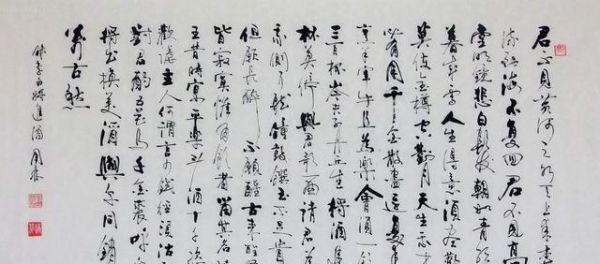 君不见黄河之水天上来奔
流到海不复回君不见高
堂明镜悲白发朝如青丝
暮成雪人生得意须尽欢
莫使金樽空对月天生我材
必有用千金散尽还复来
烹羊宰牛且为乐会须一饮
三百杯岑夫子丹丘生酒
杯莫停与君歌一曲请君为
我倾耳听钟鼓馔玉不足贵
但愿长醉不愿醒古来圣
皆寂寞惟有饮者留其名
王昔时宴平乐斗酒十千恣
欢谑主人何为言少钱径须沽
对君酌五花马千金裘呼
将出换美酒与尔同销
万古愁
录李白将进酒 周